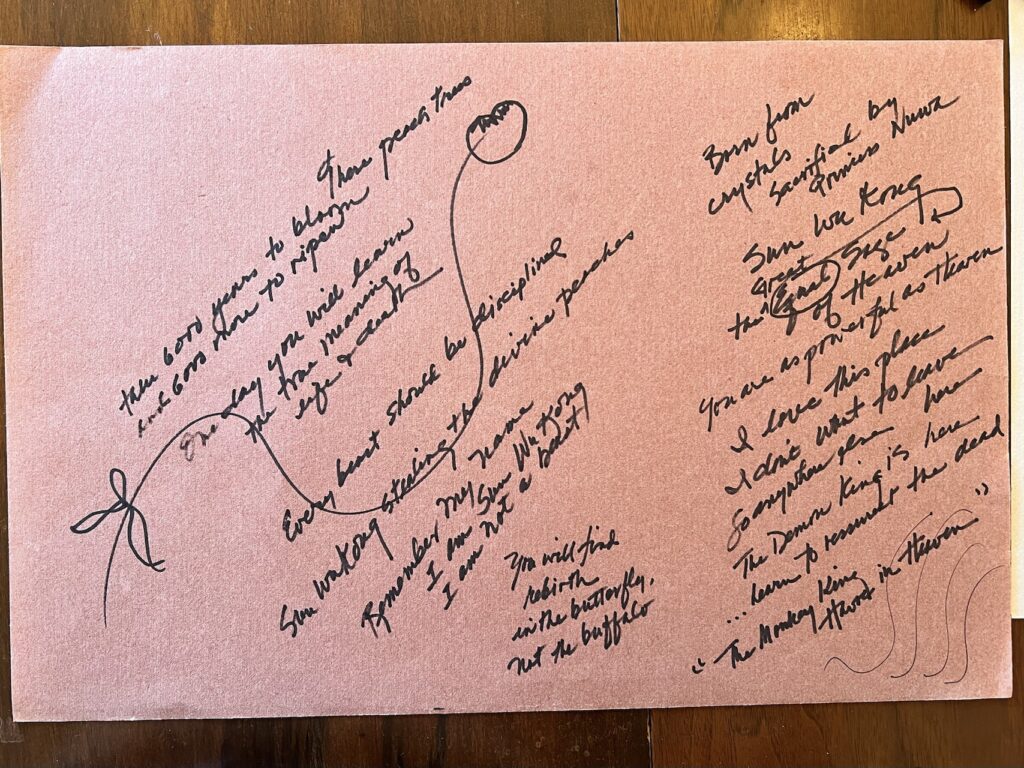 these peach trees
take 6000 years to bloom
and 6000 more to ripen
One day you will learn
the true meaning of
life & death
Every beast should be disciplined
Sun Wukong stealing the divine peaches
Remember my name
I am Sun Wu Kong
I am not a beast!
You will find
rebirth
in the butterfly,
not the buffalo
Born from
crystals
sacrificed by
Princess Nuwa
Sun Wu Kong
Great
the "Equal Sage
of Heaven
You are as powerful as Heaven
I love this place
I don't want to leave
go anywhere else
here
The Demon King is here
... learn to resurrect the dead
"The Monkey King
Havoc in Heaven"